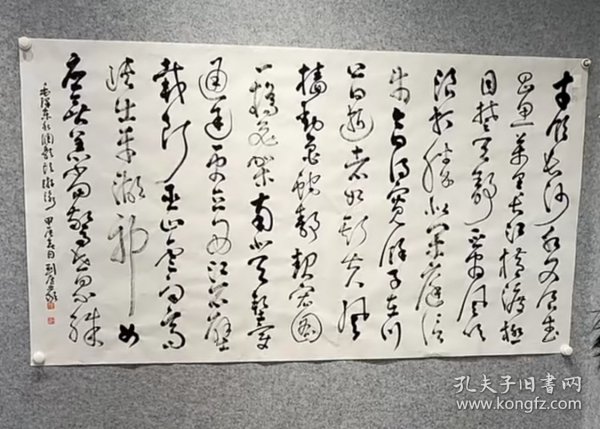 才饮长沙水又食武
昌鱼万里长江横渡极
目楚天舒不管风吹
浪打胜似闲庭信
步今日得宽馀子在川
上曰逝者如斯夫风
樯动龟蛇静起宏图
一桥飞架南北天堑变
通途更立西江石壁
截断巫山云雨高
峡出平湖神女
应无恙当惊世界殊
毛泽东水调歌头游泳 甲辰春月
孔夫子旧书网
www.kongfz.com